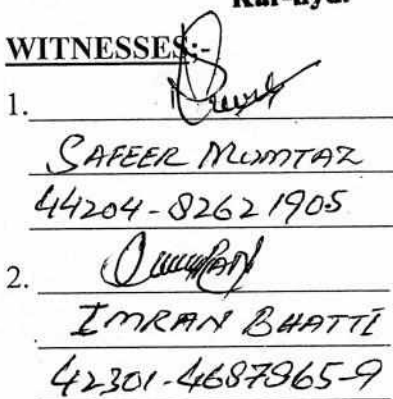 WITNESSES:-
1.
SAFEER MUMTAZ
44204-8262190-5
2.
IMRAN BHATTI
42301-4687965-9